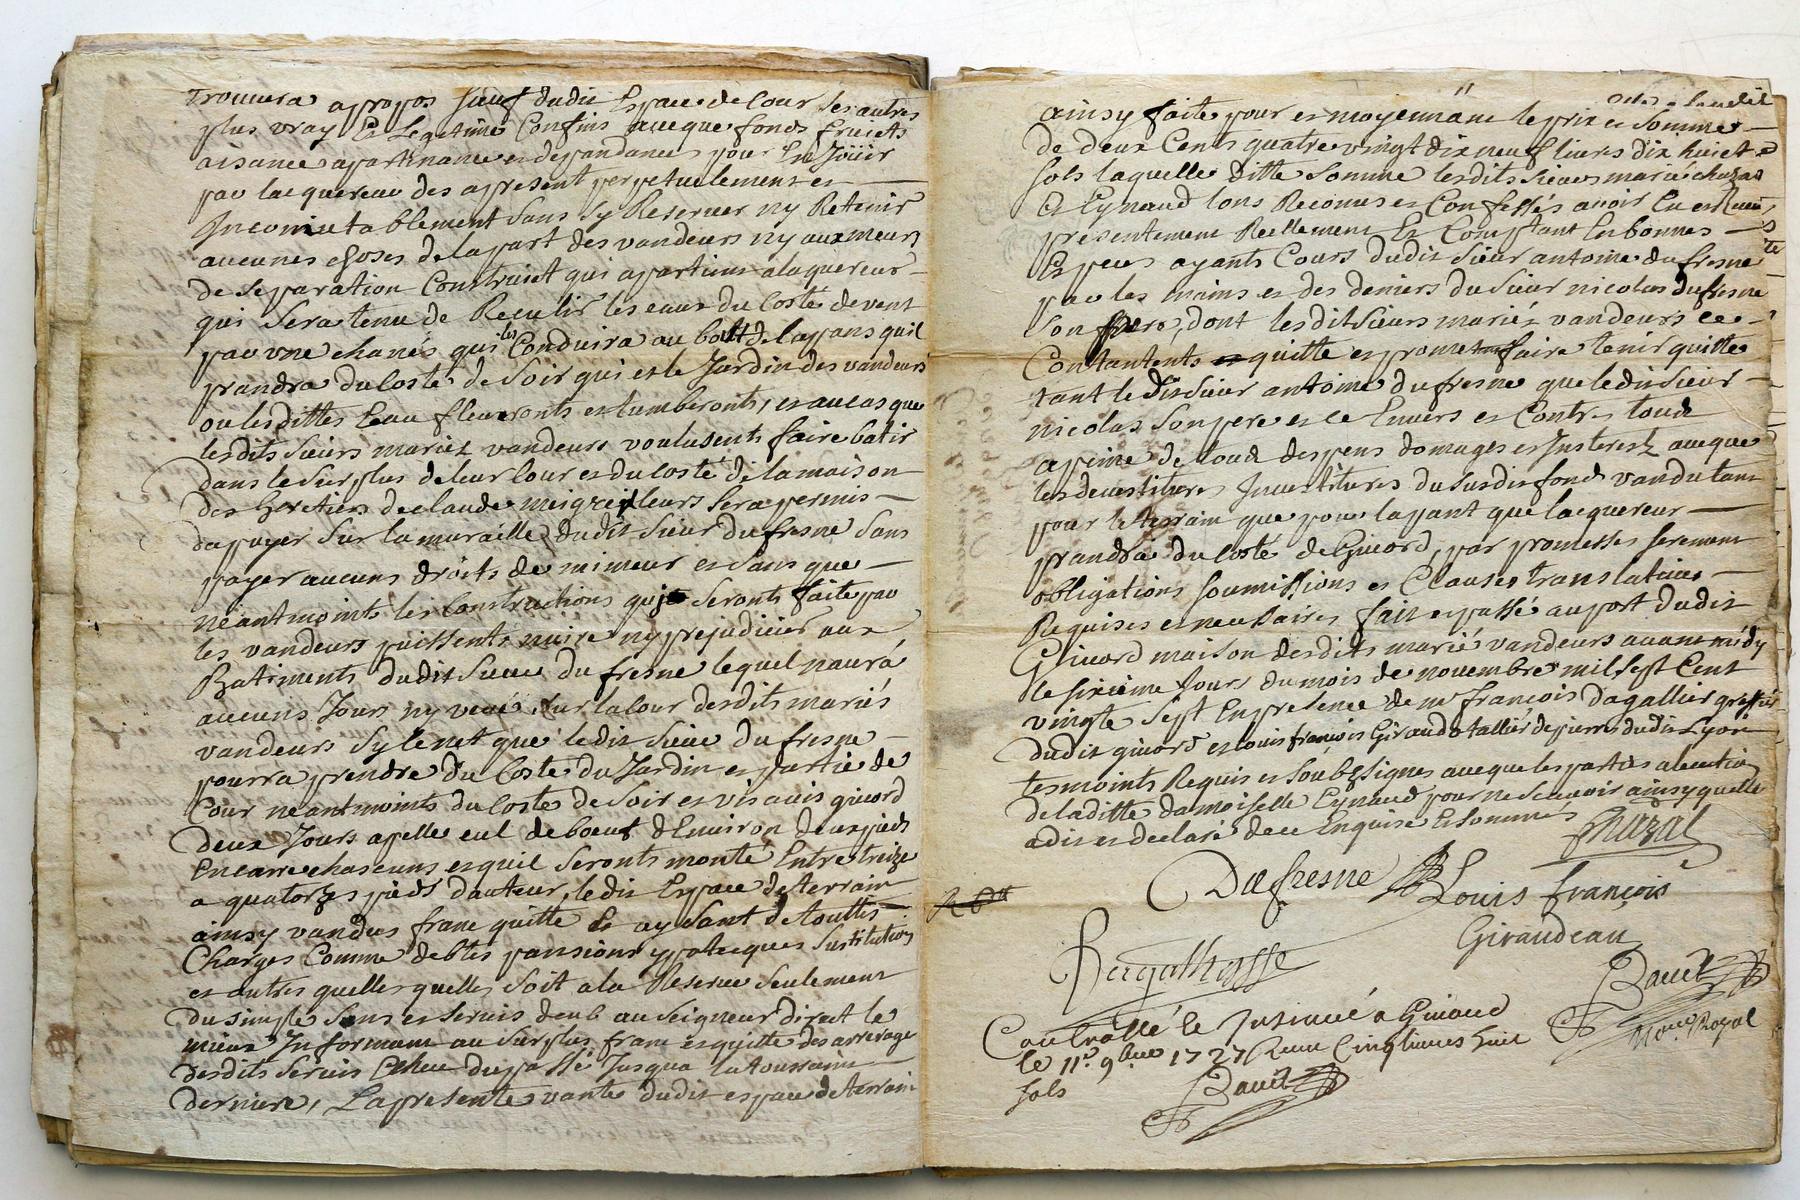 trouvera apropos sauf dudit Espace de Cour ses autres
plus vray Et Legitime Confins aveque fonds fruicts
aisance apartenance et depandances pour En Joüir
par lacquereur des apresent perpetuelement et
Incomutablement sans sy Reserver ny Retenir
aucunes choses de la part des vandeurs ny aux meurs
de separation Construict qui apartient alaquereur
qui sera tenu de Reculir les eaux du Costé de vent
par vne chanés qui les Conduira au bout de la pans quil
prandra du Costé de soir qui est le Jardin des vandeurs
ou lesdittes Eau fleuronts et tumberonts, et au cas que
lesdits sieurs mariez vandeurs voulusents faire batir
dans le surplus de leur Cour et du costé de la maison
des heretiers de claude meigre leurs sera permis
dapuyer sur la muraille dudit sieur dufresne sans
payer aucuns droits de mimeur et sans que
néantmoints les Constructions qui seronts faite par
les vandeurs puissents nuire ny prejudicier aux
Batiments dudit sieur du fresne lequel naura
aucuns Jours ny veue sur la Cour desdits mariés
vandeurs sy le net que ledit sieur du fresne
pourra prendre du Costé du Jardin et partie de
Cour néantmoints du Costé de soir et vis avis givord
deux Jours apellé euil de boeuf d'Environ deux pieds
En carré chascuns et quil seronts monté Entre treize
a quatorze pieds dauteur, ledit Espace de terrain
ainsy vandus franc quitte Et aysant de touttes
Charges Comme debtes pansions ypotecques sustitutions
et autres quelles quelles soit ala Reserve seulement
du simple sens et servis deub au seigneur direct le
mieux Informant au surplus franc et quitte des arrerage
desdits servis Escheu du passé Jusqua la toussaint
derniere, La presente vante dudit espace de terrain
ainsy faite pour et moyennant le prix et somme
de deux Cents quatre vingt dix neuf livres dix huict
sols laquelle ditte somme lesdits sieurs marié chazal
Et Eynaud lons Reconnus et Confessés avoir Eu et Receu
présentement Réellement Et Comptant En bonnes
Especes ayants Cours dudit sieur antoine dufresne
par les mains et des deniers du sieur nicolas dufresne
son pere, dont lesdit sieurs mariéz vandeurs ce
Contantents quitte et promet faire tenir quitte
tant ledit sieur antoine dufresne que ledit sieur
nicolas son pere et ce Envers et Contre touts
apeine de touts despens domages et Justerest aveque
les devestitures Investitures du susdit fond vandu tant
pour le terrain que pour la pant que lacquereur
prandra du Costé de Givord, par promesses serement
obligations soumissions et Clauses translatives
Requises et necessaires fait et passé au port dudit
Givord maison desdits marié vandeurs avant midy
le sixième Jours du mois de novembre mil sept Cent
vingte sept En presence de mr François dagallier greffier
dudit givord et Louis françois Giraud tallié de pierre dudit Lyon
tesmoints Requis et soubzsignes aveque les parties alexeption
de laditte damoiselle Eynaud pour ne scavoir ainsy quelle
a dit et declaré de ce Enquise Et sommés
Chazal
Dufresne
Louis François
Giraudeau
Bault
Nore Royal
Controllé le Insinué à Givord
le 11e. 9bre 1727 Receu Cinq livres huit
sols
Bault